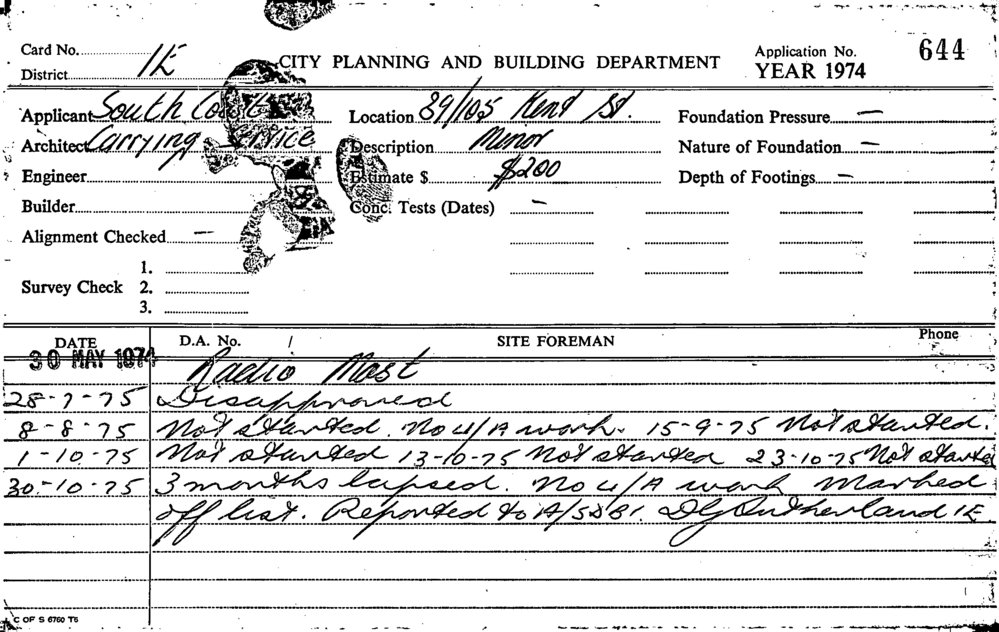 Card No. 1E
District
CITY PLANNING AND BUILDING DEPARTMENT
Application No. 644
YEAR 1974
Applicant South Coast Location 89/105 Kent St. Foundation Pressure —
Architect Carrying Service Description Minor Nature of Foundation —
Engineer Estimate $ $200 Depth of Footings —
Builder Conc. Tests (Dates) —
Alignment Checked —
1.
Survey Check 2.
3.
DATE D.A. No. / SITE FOREMAN Phone
30 MAY 1974 Radio Mast
28-7-75 Disapproved
8-8-75 Not started. No U/A work. 15-9-75 Not started.
1-10-75 Not started 13-10-75 Not started 23-10-75 Not started
30-10-75 3 months lapsed. No U/A work Marked
off list. Reported to A/SDBI. DG Sutherland 1E
C OF S 6760 T6